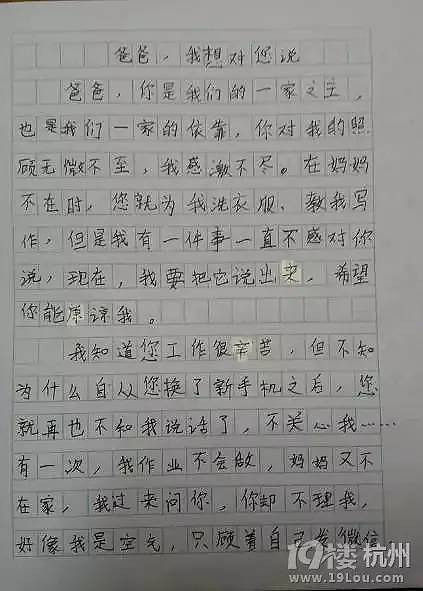 爸爸，我想对您说
爸爸，你是我们的一家之主，
也是我们一家的依靠，你对我的照
顾无微不至，我感激不尽。在妈妈
不在时，您就为我洗衣服、教我写
作，但是我有一件事一直不感对你
说，现在，我要把它说出来，希望
你能原谅我。
我知道您工作很辛苦，但不知
为什么自从您换了新手机之后，您
就再也不和我说话了，不关心我……
有一次，我作业不会做，妈妈又不
在家，我过来问你，你却不理我，
好像我是空气，只顾着自己发微信。
19楼 杭州
www.19Lou.com